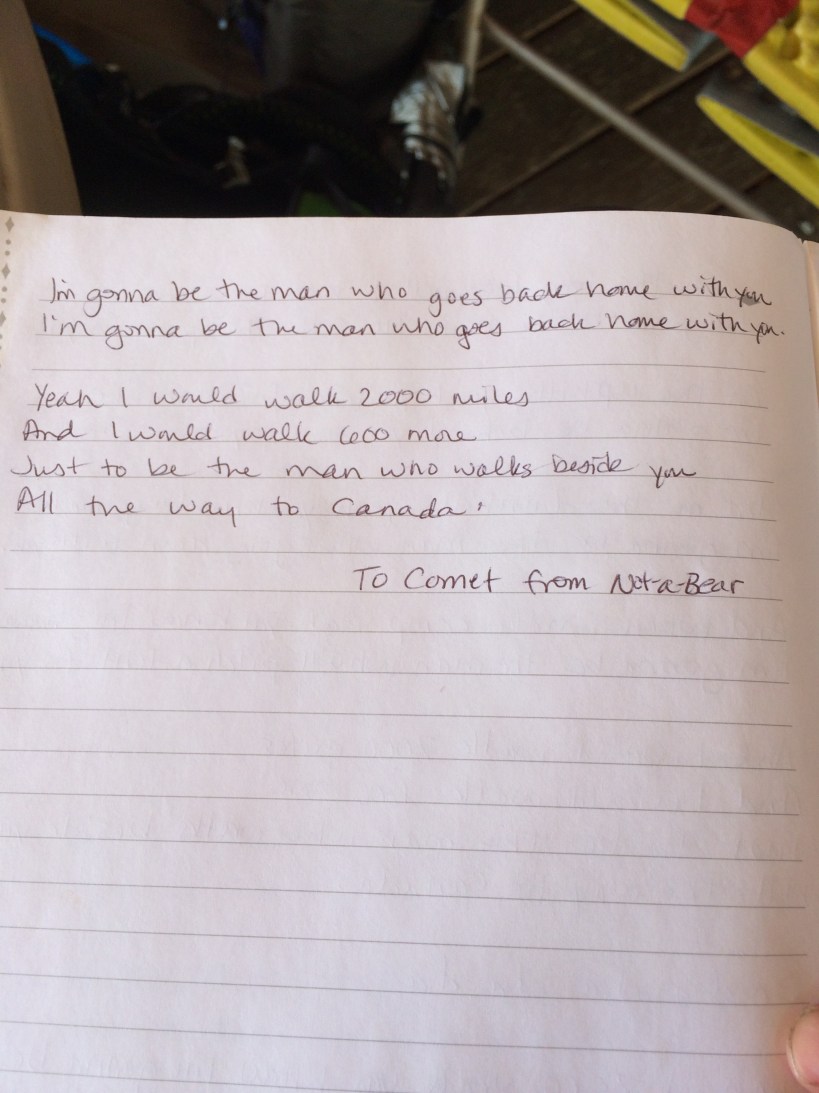 I'm gonna be the man who goes back home with you
I'm gonna be the man who goes back home with you.
Yeah I would walk 2000 miles
And I would walk 600 more
Just to be the man who walks beside you
All the way to Canada.
To Comet from Not-a-Bear